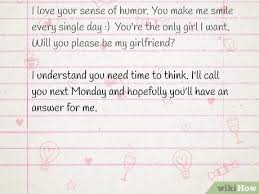 I love your sense of humor. You make me smile
every single day :)  You're the only girl I want.
Will you please be my girlfriend?
I understand you need time to think. I'll call
you next Monday and hopefully you'll have an
answer for me.
wikiHow